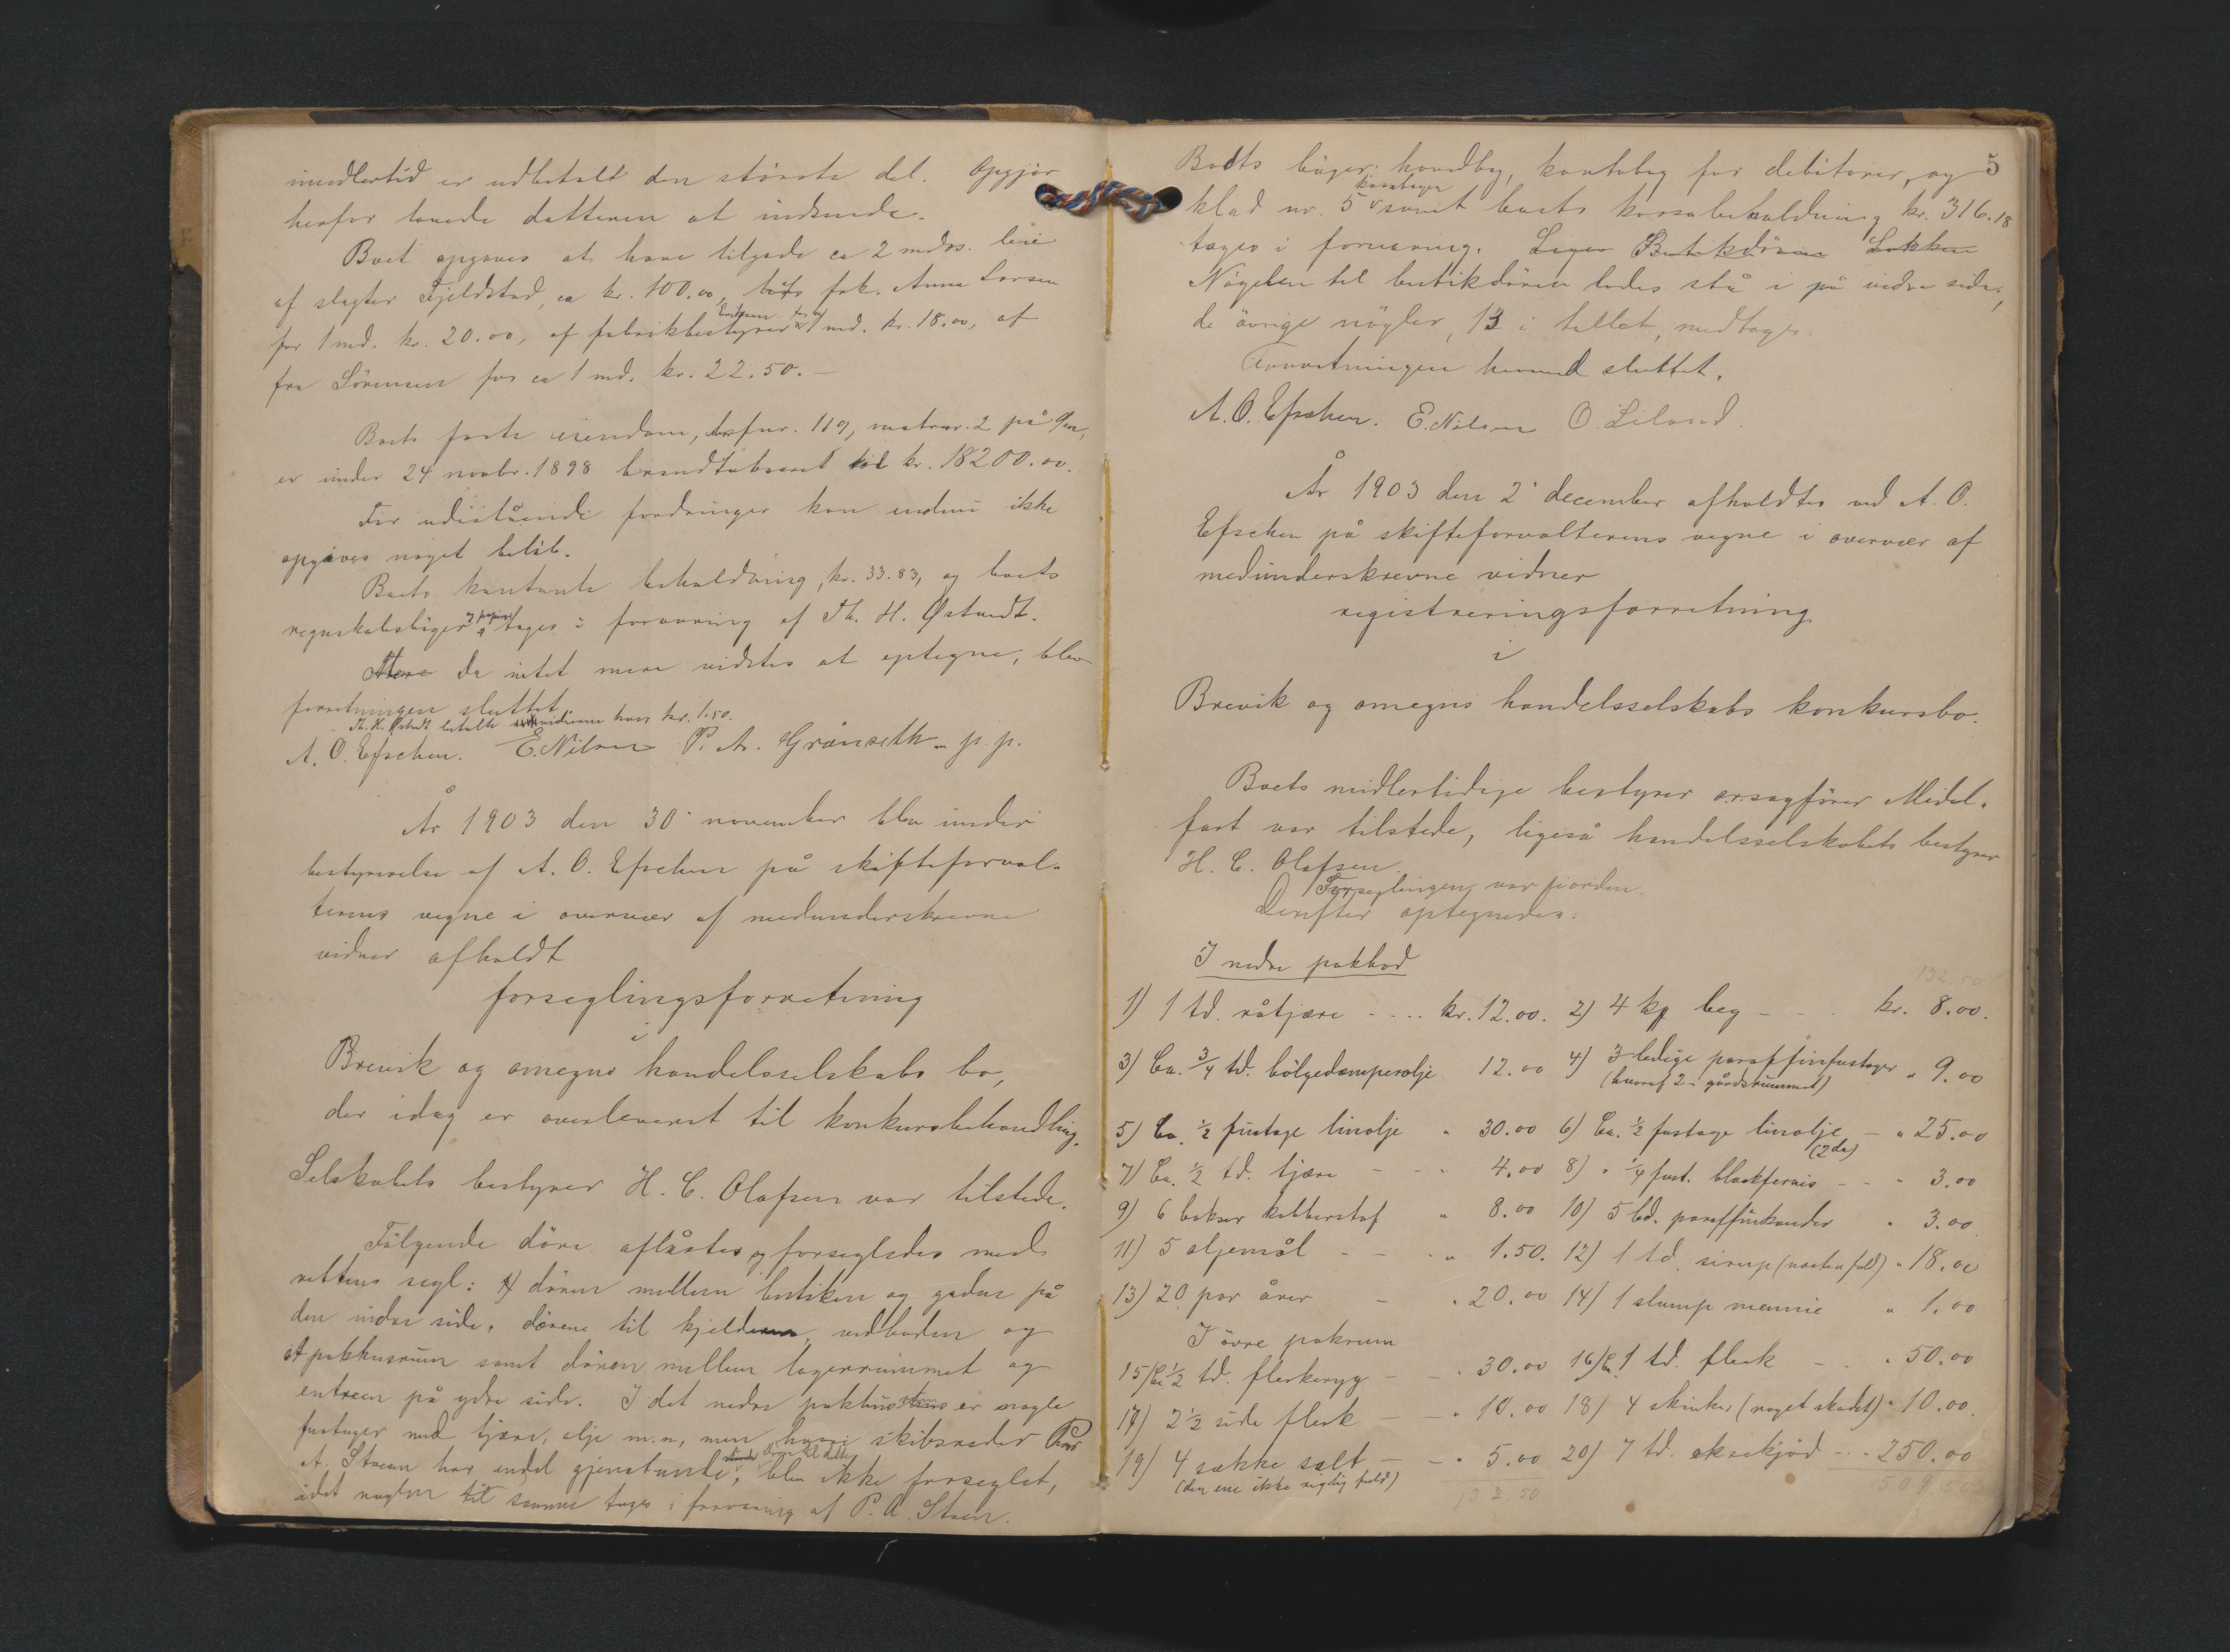 imidlertid er udbetalt den største del. Opgjør
herfor lovede datteren at indsende.
Boet opgaves at have tilgode ca 2 mdrs. leie
af slagter Fjeldstad, ca kr. 100.00, frk. Anna Larsen
for 1 md. kr. 20.00, af fabrikbestyrer for 1 md. kr. 18.00, af
fra Sörensen for ca 1 md. kr. 22.50.—
Boets faste eiendom, brfnr. 119, matrnr. 2 på Øen,
er under 24 novbr. 1898 brandtakseret til kr. 18200.00.
For udestående fordringer kan endnu ikke
opgives noget belöb.
Boets kontante beholdning, kr. 33.83, og boets
regnskabsböger og papirer tages i forvaring af Th. H. Østvedt.
Mere Da intet mere vidstes at optegne, blev
forretningen sluttet.
Th. H. Østvedt betalte vidnerne hver kr. 1.50.
A. O. Efschen. E. Nilsen P. A. Grønseth p.p.
År 1903 den 30' november blev under
bestyrelse af A. O. Efschen på skifteforval-
terens vegne i overvær af medunderskrevne
vidner afholdt
forseglingsforretning
i
Brevik og omegns handelsselskabs bo,
der idag er overleveret til konkursbehandling.
Selskabets bestyrer H. C. Olafsen var tilstede.
Fölgende döre aflåstes og forsegledes med
rettens segl: dören mellem butiken og gaden på
den indre side, dörene til kjelderen, vedboden og
et pakhusrum samt dören mellem lagerrummet og
entreen på ydre side. I det nedre pakhusrum er nogle
fustager med tjære, olje m.m., men hvori skibsreder P.
A. Stoen har endel gjenstande, dören til dette blev ikke forseglet,
idet nøglen til samme toges i forvaring af P. A. Stoen.
5
Boets böger: haandbog, kontobog for debitorer, og
klad nr. 5 kassabogen samt boets kassabeholdning kr. 316.18
toges i forvaring. Liges Butikdören Lukken
Nöglen til butikdören lodes stå i på indre side,
de övrige nögler, 13 i tallet, medtoges.
Forretningen hermed sluttet.
A. O. Efschen. E. Nilsen O. Liland.
År 1903 den 2' december afholdtes ved A. O.
Efschen på skifteforvalterens vegne i overvær af
medunderskrevne vidner
registreringsforretning
i
Brevik og omegns handelsselskabs konkursbo.
Boets midlertidige bestyrer o.r.sagförer Midel-
fart var tilstede, ligeså handelsselskabets bestyrer
H. C. Olafsen.
Forseglingen var i orden.
Derefter optegnedes:
I nedre pakbod
132.50
1) 1 td. råtjære - - - - kr. 12.00. 2) 4 kg beg - - - kr. 8.00.
3) Ca. 3/4 td. bölgedæmperolje 12.00 4) 3 ledige paraffinfustager " 9.00
(hvoraf 2 i gårdsrummet)
5) Ca. 1/2 fustage linolje " 30.00 6) Ca. 1/2 fustage linolje - " 25.00
(2da)
7) Ca. 1/2 td. tjære - - - 4.00 8) " 1/4 fust. blackfernis - - - 3.00
9) 6 bokser " 8.00 10) 5 bd. paraffinkander " 3.00
11) 5 oljemål - - - " 1.50. 12) 1 td. sirup (næsten fuld) " 18.00
13) 20 par årer - " 20.00 14) 1 slump mønie " 1.00
I övre pakrum
15) Ca 1/2 td. fleskeryg - - " 30.00 16) Ca 1 td. flesk - - " 50.00
17) 2 1/2 side flesk - - " 10.00 18) 4 skinker (noget skadet) " 10.00.
19) 4 sække salt - - " 5.00 20) 7 td. oksekjöd - - - 250.00
(den ene ikke rigtig fuld)
132 50
509.50